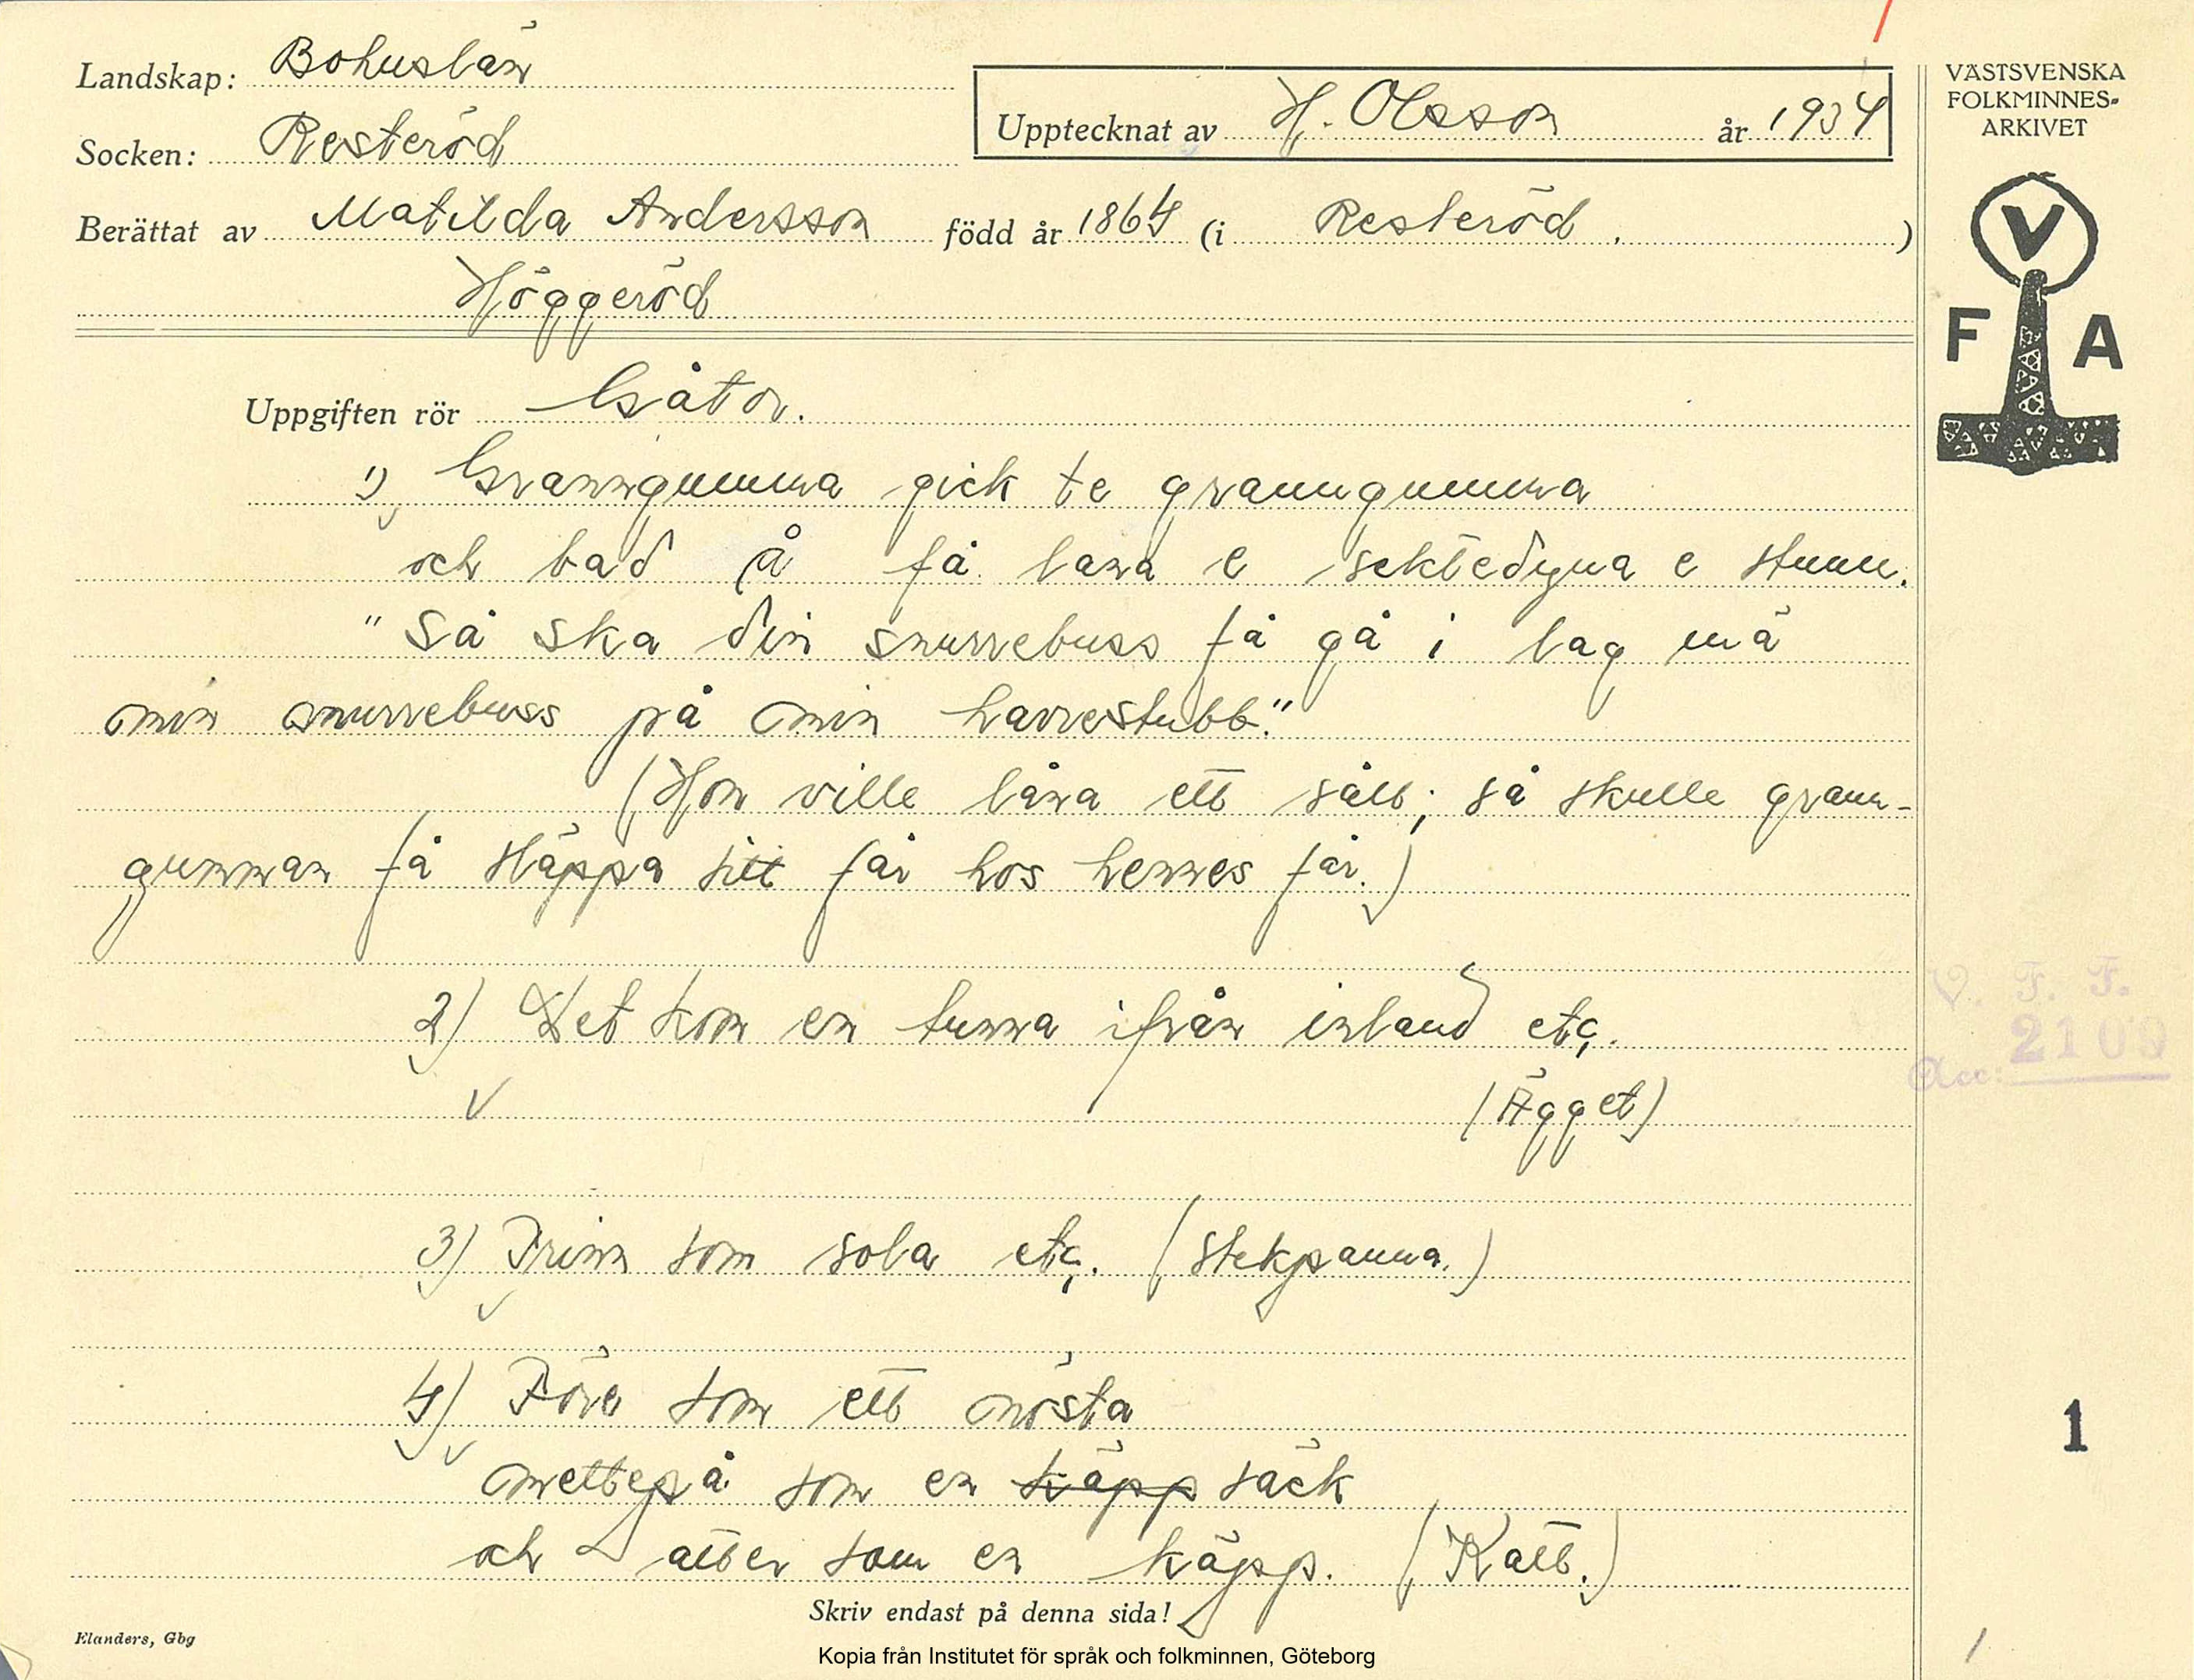 Landskap: Bohuslän
Socken: Resteröd
Upptecknat av H. Olsson år 1934
VÄSTSVENSKA
FOLKMINNES-
ARKIVET
Berättat av Matilda Andersson född år 1864 (i Resteröd.)
Höggeröd
V
F A
Uppgiften rör Gåtor.
1) Granngumma gick te granngumma
och bad å få lana e sektedyna e stunn.
"Så ska din snurrebuss få gå i lag mä
min snurrebuss på min harrestubb."
(Hon ville låna ett såll; så skulle grann-
gumman få släppa sitt får hos hennes får.)
2) Det kom en tunna ifrån inland etc.
(Ägget)
V. F. F.
Acc: 2109
3) Trinn som sola etc. (stekpanna.)
4) Före som ett nösta
mettepå som en käpp säck
och atter som en käpp. (Katt.)
1
Skriv endast på denna sida!
Elanders, Gbg
Kopia från Institutet för språk och folkminnen, Göteborg